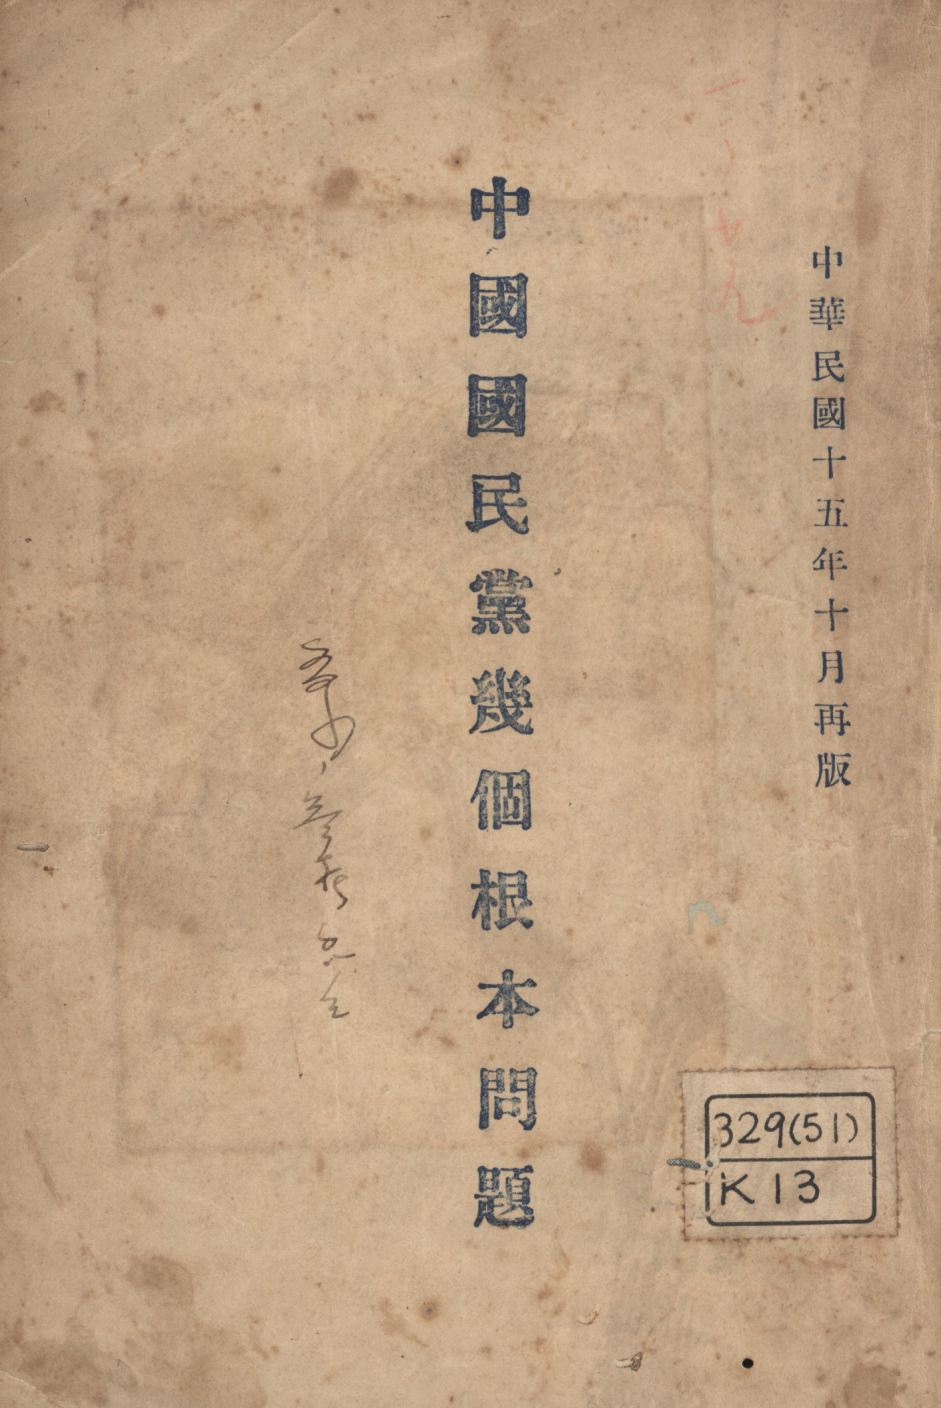 中華民國十五年十月再版
中國國民黨幾個根本問題
329(51)
K13